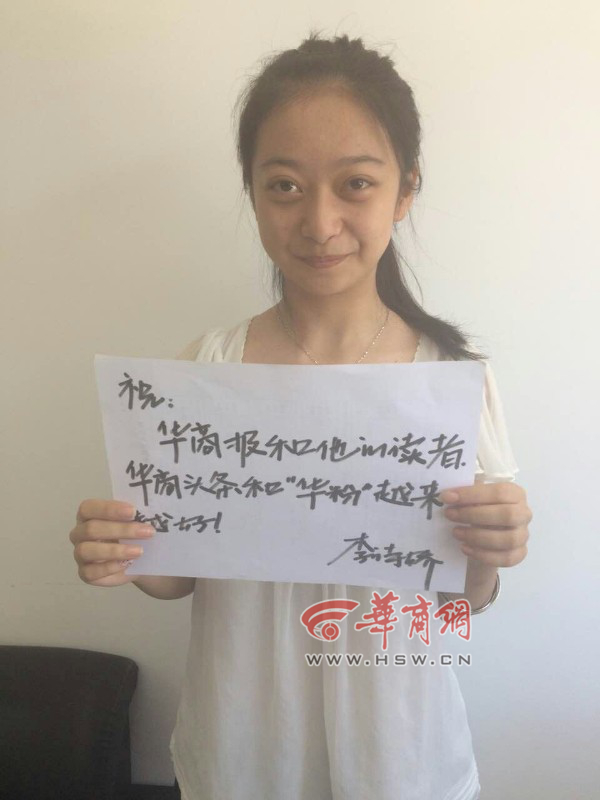 祝：
华商报和他的读者、
华商头条和"华粉"越来
越好！
李诗硚
華商網
WWW.HSW.CN